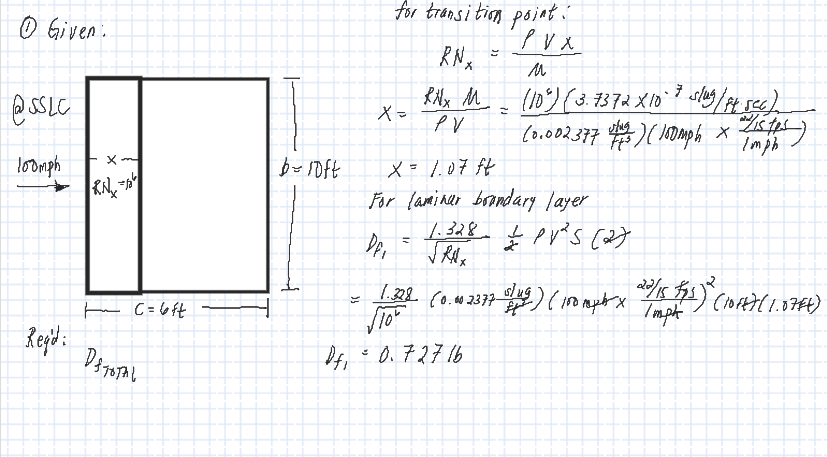 ① Given:
@ SSLC
100mph
x
RNx = 10⁶
b = 10ft
C = 6ft
Req'd:
Df TOTAL
for transition point:
RNx = ρVx / μ
x = RNx μ / ρV = (10⁶)(3.7372 x 10⁻⁷ slug/ft sec) / (0.002377 slug/ft³)(100mph x 22/15 fps / 1mph)
x = 1.07 ft
For laminar boundary layer
Df₁ = 1.328 / √RNx ½ ρV²S (2)
= 1.328 / √10⁶ (0.002377 slug/ft³)(100mph x 22/15 fps / 1mph)² (10ft)(1.07ft)
Df₁ = 0.727 lb